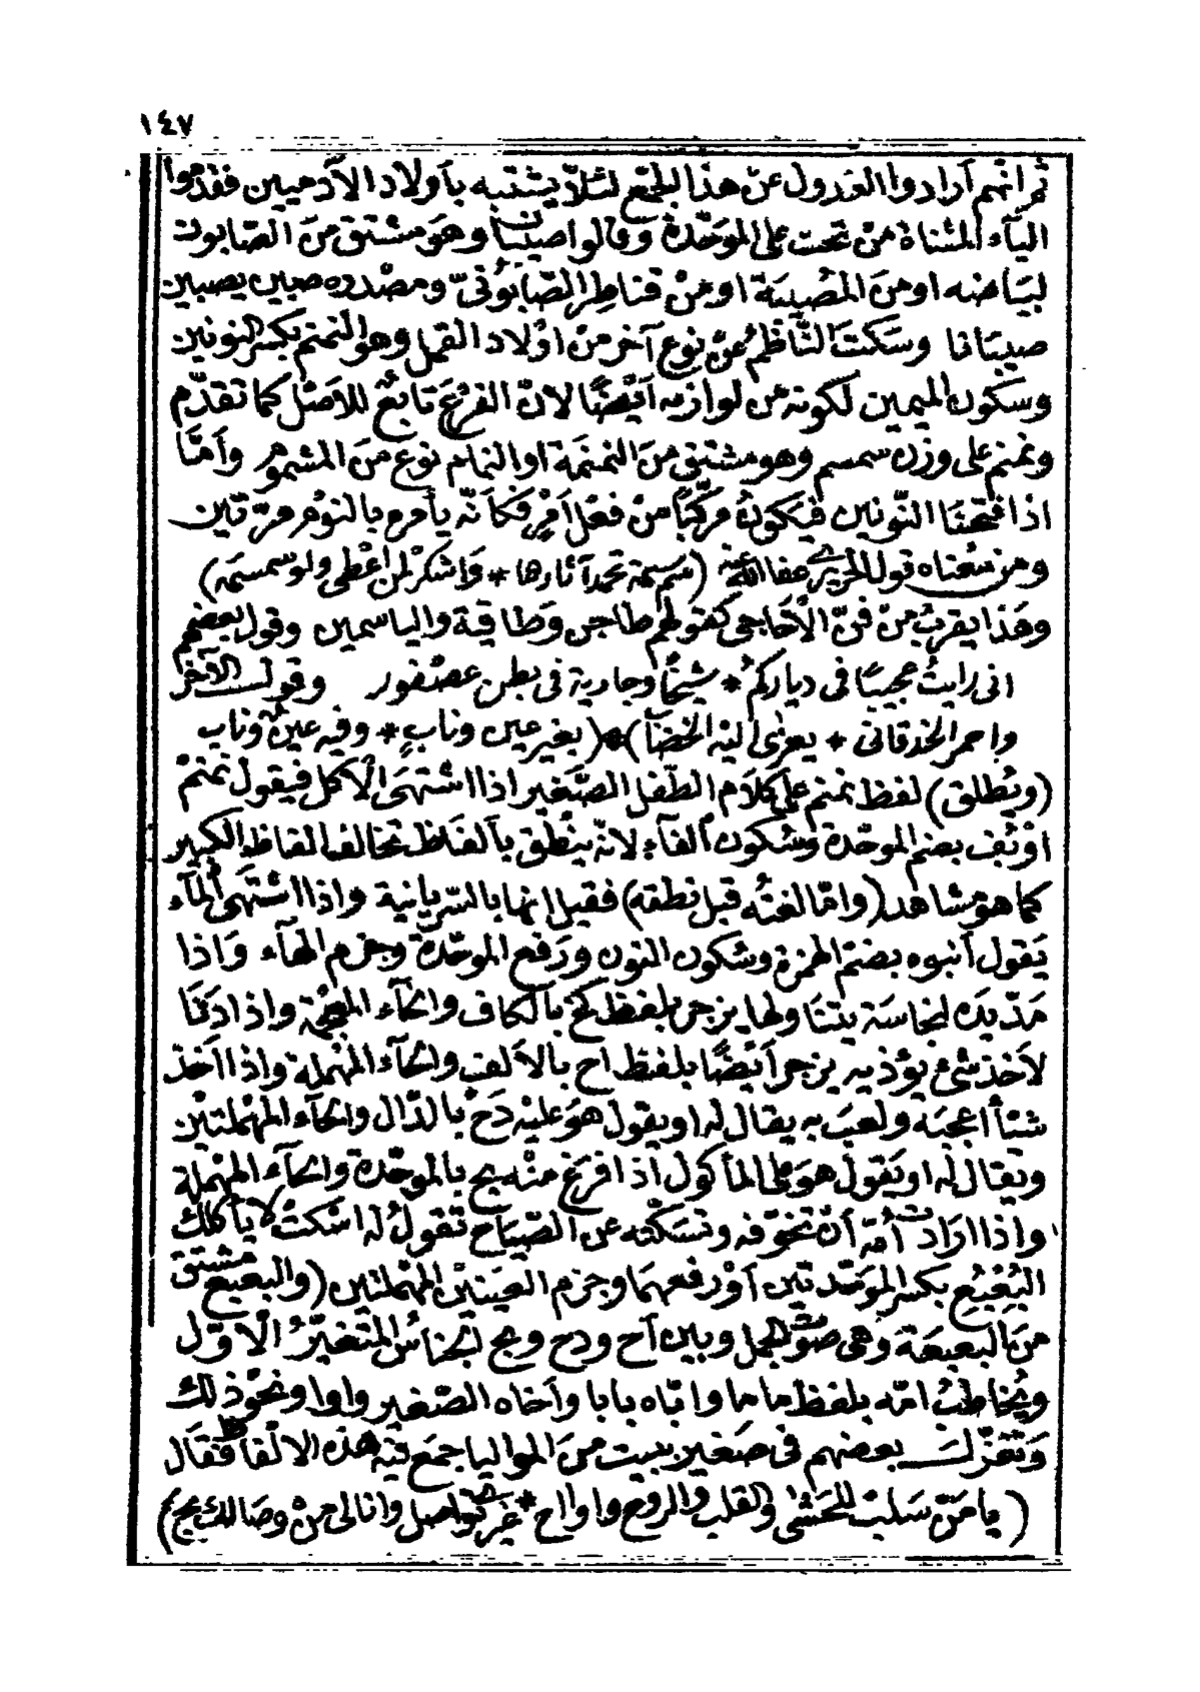 ١٤٧
ثم انهم أرادوا العدول عن هذا الجمع لئلا يشتبه بأولاد الآدميين فقدموا
اليآء المثناة من تحت على الموحّدة وقالوا صيبان وهو مشتق من الصابون
لبياضه او من المصيبة او من قناطر الصّابُونىّ ومصدره صيبن يصيبن
صيبانا وسكت النّاظم عن نوع آخر من اوْلاد القمل وهو النمنم بكسر النونين
وسكون الميمين لكونه من لوازمه أيْضًا لان الفرع تابع للاصْل كما تقدّم
ونمنم على وزن سمسم وهو مشتق من النمنمة او النمام نوع من المشموم وأمّا
اذا فتحنا النّونين فيكونُ مركّبًا من فعْل أمْر فكأنّه يأمره بالنوْم مرّتين
ومن معْناه قول الحريرى عفا الله عنه (سم سمة تحمد آثارها * وَاشكر لمن اعْطى ولو سمسمه)
وهَذا يقرب من فنّ الأحَاجى كقولهم طاجن وَطاقية والياسمين وقول بعضهم
انى رايت عجيبًا فى دياركمُ * شيخًا وجارية فى بطن عصْفور وقول الآخر
واحمر الخدقانى * يعزٰى اليْه الخضآب * (بغير عين ونابٍ * وفيه عين وناب
(ويُطلق) لفظ نمنم على كلَام الطّفل الصّغير اذا اشتهَى الأكل فيقول نمنمْ
اوْ بُف بضم الموحّدة وسُكون الفآء لانّه ينْطق بألفاظ تخالف الفاظ الكبير
كما هو مشاهد (وامّا لغتُه قبل نطقه) فقيل انها بالسّريانية واذا اشتهَى المآء
يَقول أنبوه بضمّ الهمزة وسُكون النون ورَفع الموحّدة وجزم الهآء وَاذا
مَدّ يدَه لنجاسَة يتنَاولها يزجر بلفظ كخ بالكاف والخآء المعجمة واذا دَنَا
لاَخذ شئ يؤذيه يزجر أيْضًا بلفظ اح بالاَلف والحآء المهْملة واذا اخذ
شيْأ اعجبَه ولعبَ به يقال له او يقول هوَ عليْه دَحْ بالدّال والحآء المهْملتيْن
ويقال له او يَقول هوَ على المأكول اذا فرغ منْه بح بالموحّدة والحآء المهْملة
واذا ارَادت أمّه أنْ تخوّفه وتسَكّته عن الصّيَاح تقولُ له اسْكتْ لا يأكلك
البُعْبُعِ بكسر الموَحّدتين أوْ رفعهمَا وجزم العيَنيْن المهْملتين (والبعبع مشتق
من البعبعة وَهى صوْت الجمل وبين آح ودح وبح الجناس المتغيّرُ الأوّل
ويُخاطبُ امّه بلفظ ماما وابّاه بابا وأخاه الصّغير واوا ونحوْ ذلك
وَتغزّلَ بعضهم فى صَغير ببيت من المواليا جمَع فيْه هذه الالْفاظ فقال
(يا مَن سَلبْ للحَشٰى والقلب والروح واواح * غيرى تواصل وانا لى منْ وصَالك بح)